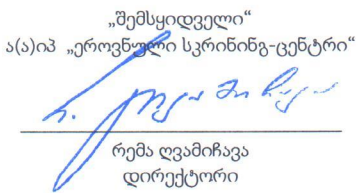 „შემსყიდველი“
ა(ა)იპ „ეროვნული სკრინინგ-ცენტრი“
რ. ღვამიჩავა
რემა ღვამიჩავა
დირექტორი